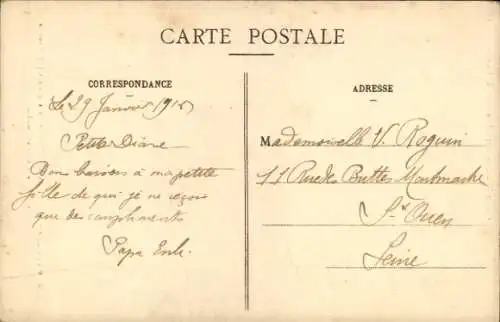 CARTE POSTALE
CORRESPONDANCE
Le 29 Janvier 1915
Petite Diane
Bon baisers à ma petite
fille de qui je ne reçois
que des compliments
Papa
ADRESSE
Mademoiselle V. Roguin
11 Rue des Buttes Montmartre
St Ouen
Seine